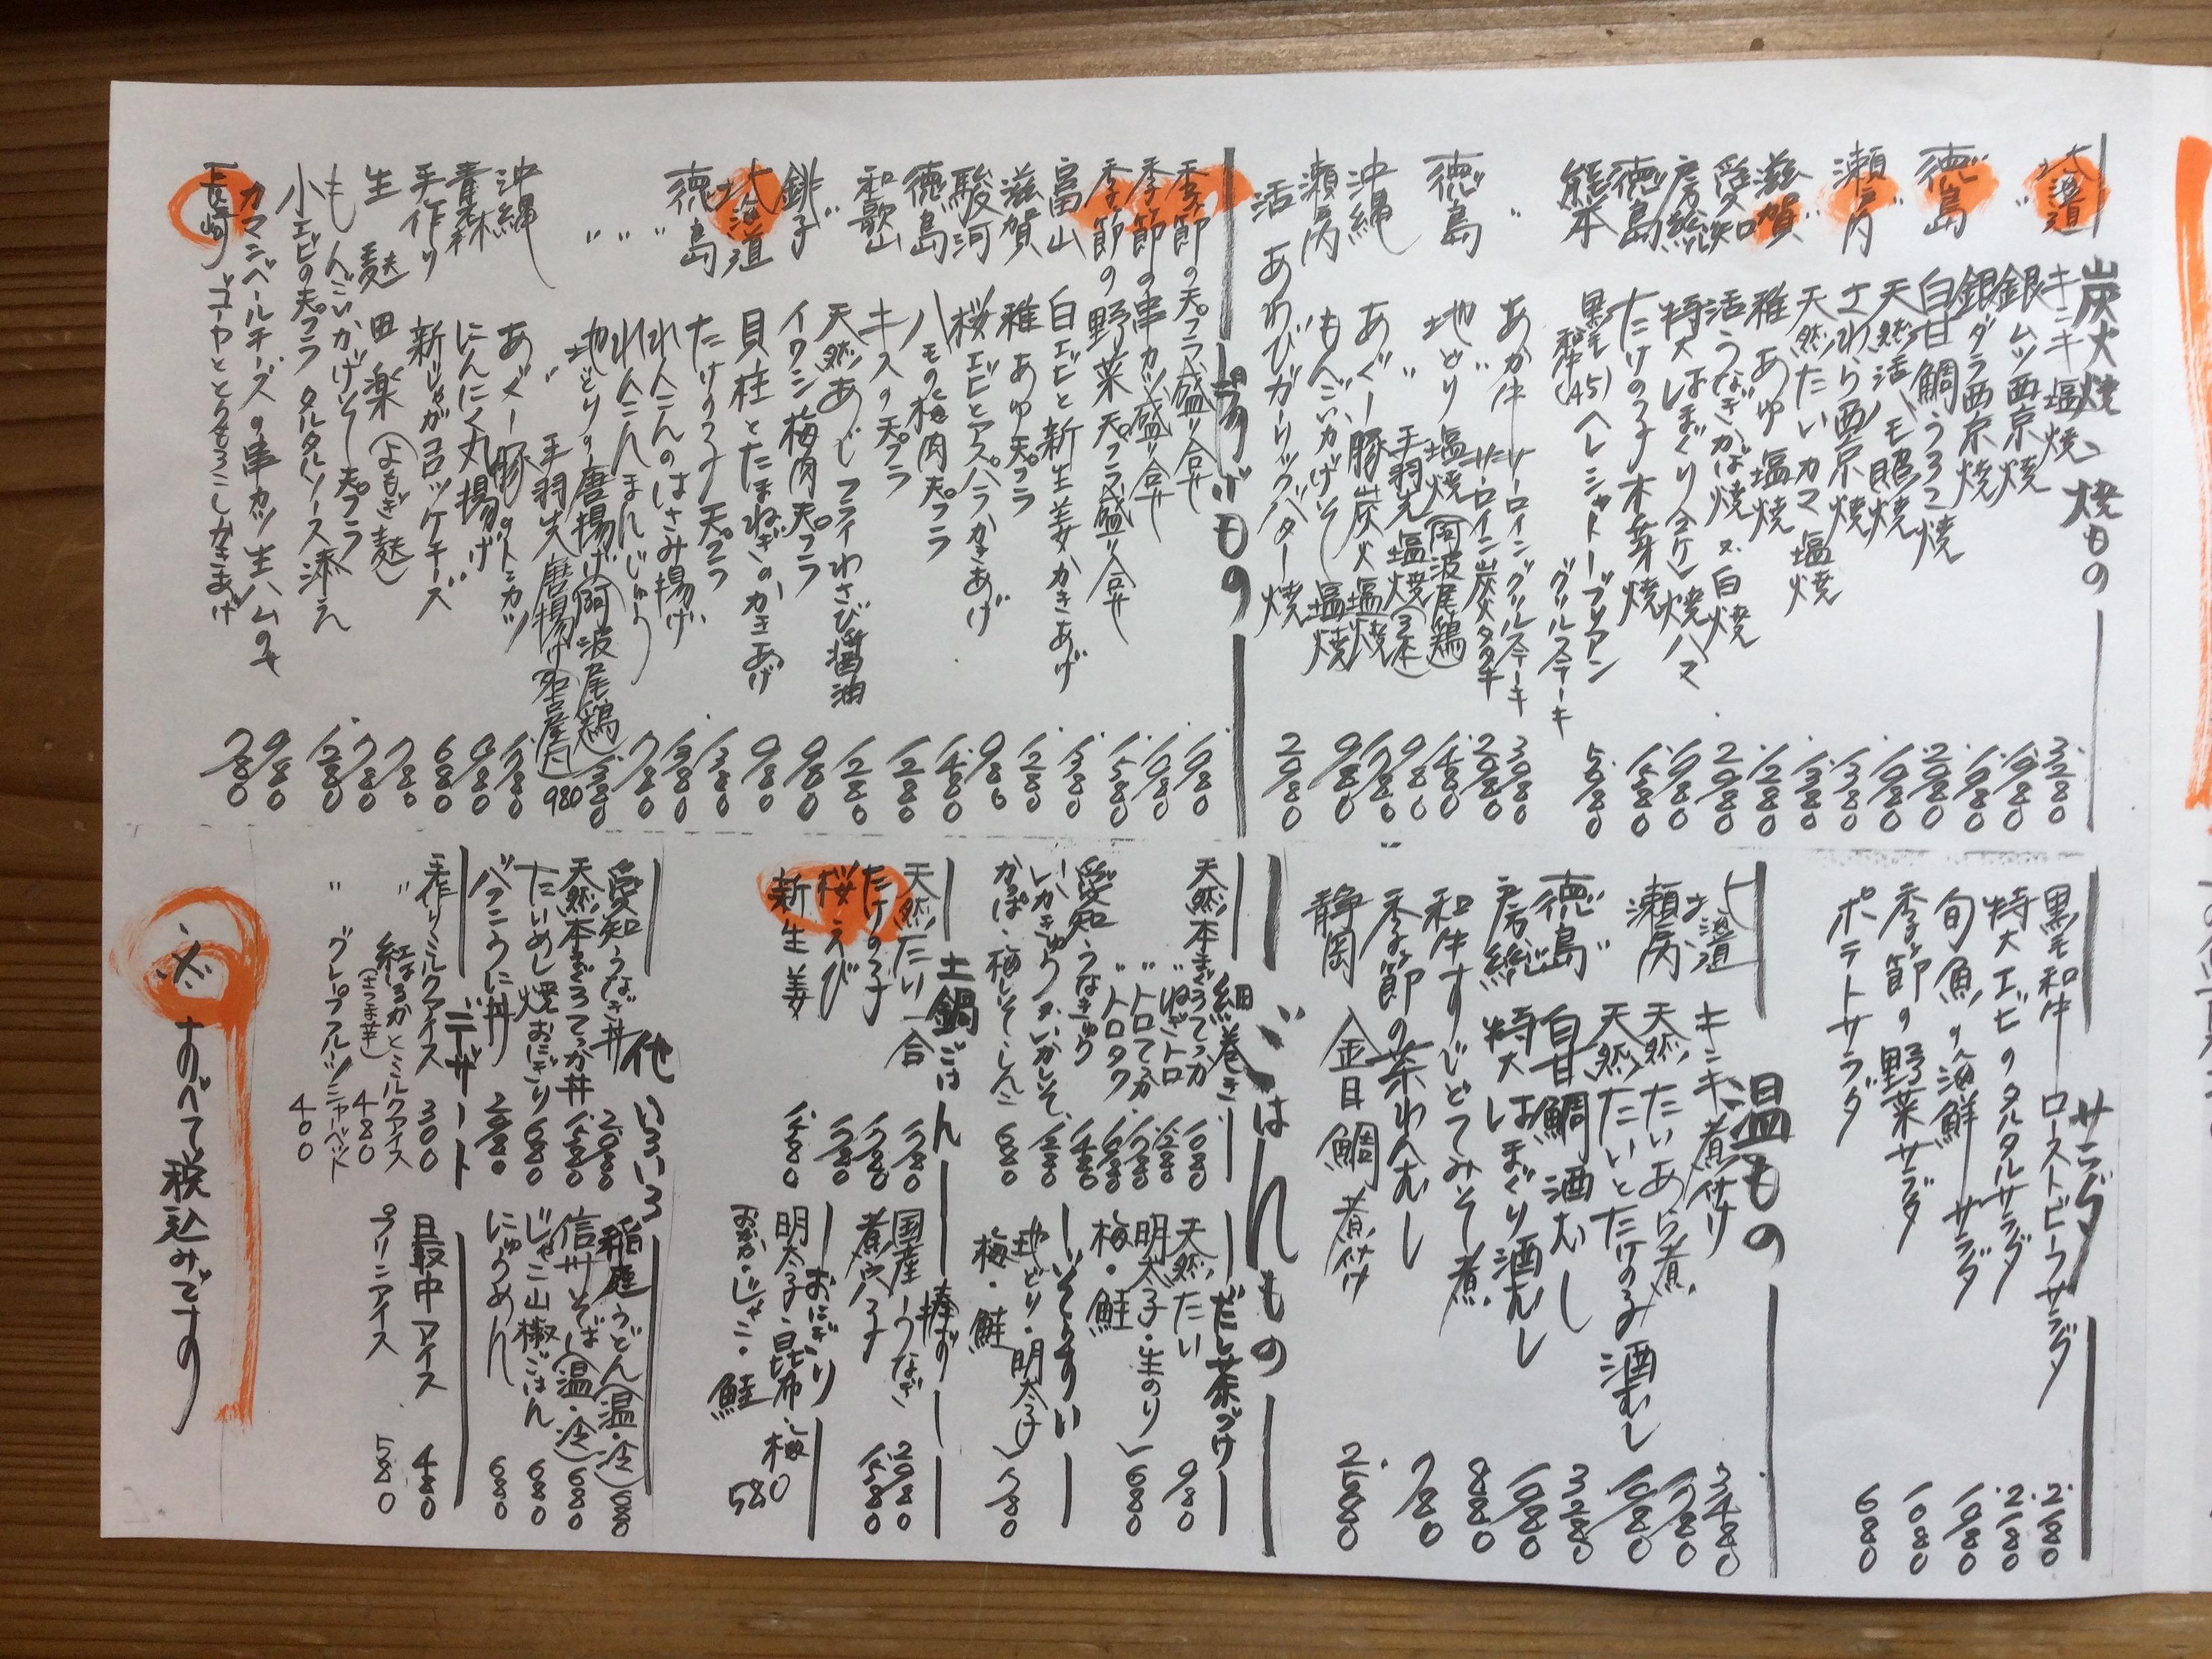 炭火焼、焼もの
北海道 キンキ塩焼 3280
〃 銀ムツ西京焼 1980
銀ダラ西京焼 1980
徳島 白甘鯛うろこ焼 2980
〃 天然活ハモ照焼 1980
瀬戸内 さわら西京焼 1380
〃 天然たいカマ塩焼 1380
滋賀 稚あゆ塩焼 1280
愛知 活うなぎかば焼 又 白焼 2980
房総 特大はまぐり
徳島 たけの子木の芽焼 1580
熊本 黒毛和牛(A5)ヘレシャトーブリアングリルステーキ 5980
〃 あか牛サーロイングリルステーキ 3080
〃 サーロイン炭火タタキ 2080
徳島 地どり塩焼(阿波尾鶏) 1480
〃 手羽先塩焼(3本) 980
沖縄 あぐー豚炭火塩焼 1780
瀬戸内 もんごいかげそー塩焼 980
活 あわびガーリックバター焼 2980
揚げもの
季節の天プラ盛り合せ 1980
季節の串カツ盛り合せ 1980
季節の野菜天プラ盛り合せ 1580
富山 白エビと新生姜かきあげ 1380
滋賀 稚あゆ天プラ 1280
駿河 桜エビとアスパラかきあげ 980
徳島 ハモの梅肉天プラ 1480
和歌山 キスの天プラ 1280
〃 天然あじフライわさび醤油 1280
銚子 イワシ梅肉天プラ 980
北海道 貝柱とたまねぎのかきあげ 980
徳島 たけの子天プラ 1380
〃 れんこんのはさみ揚げ 1380
〃 れんこんまんじゅう 780
〃 地どりの唐揚げ(阿波尾鶏) 1380
〃 手羽先唐揚げ(名古屋風) 980
沖縄 あぐー豚のトンカツ 1780
青森 にんにく丸揚げ 980
手作り 新じゃがコロッケチーズ 680
生麩田楽(よもぎ麩) 780
もんごいかげそー天プラ 780
小エビの天プラ タルタルソース添え 1280
カマンベールチーズの串カツ生ハムのせ 980
長崎 ゴーヤととうもろこしかきあげ 780
サラダ
黒毛和牛ローストビーフサラダ 2180
特大エビのタルタルサラダ 2180
旬魚の海鮮サラダ 1980
季節の野菜サラダ 1080
ポテトサラダ 680
温もの
北海道 キンキ煮付け 3480
瀬戸内 天然たいあら煮 1780
〃 天然たいとたけのこ酒むし 1680
徳島 白甘鯛酒むし 3280
房総 特大はまぐり酒むし 1980
和牛すじどてみそ煮 880
季節の茶わんむし 780
静岡 金目鯛煮付け 2580
ごはんもの
細巻き
天然本まぐろてっか 1080
〃 ねぎトロ 1280
〃 トロてっか 1780
〃 トロタク 1680
愛知うなきゅう 1480
いかきゅう又いかしそ 1280
かっぱ・梅しそ・しんこ 680
だし茶づけ
天然たい 980
明太子・生のり
梅・鮭 680
ぞうすい
地どり・明太子
梅・鮭 780
土鍋ごはん
天然たい一合 1780
たけの子 1780
桜えび 1780
新生姜 1480
棒ずし
国産うなぎ 2980
煮穴子 1580
おにぎり
明太子・昆布・梅
おかか・じゃこ・鮭 580
他いろいろ
愛知うなぎ丼 2980
天然本まぐろてっか丼 1580
たいめし焼おにぎり 680
バフンうに丼 2980
稲庭うどん(温・冷) 680
信州そば(温・冷) 680
じゃこ山椒ごはん 680
にゅうめん 680
デザート
手作りミルクアイス 300
〃 紅はるかとミルクアイス(さつま芋) 480
〃 グレープフルーツシャーベット 400
最中アイス 480
プリンアイス 580
※すべて税込みです